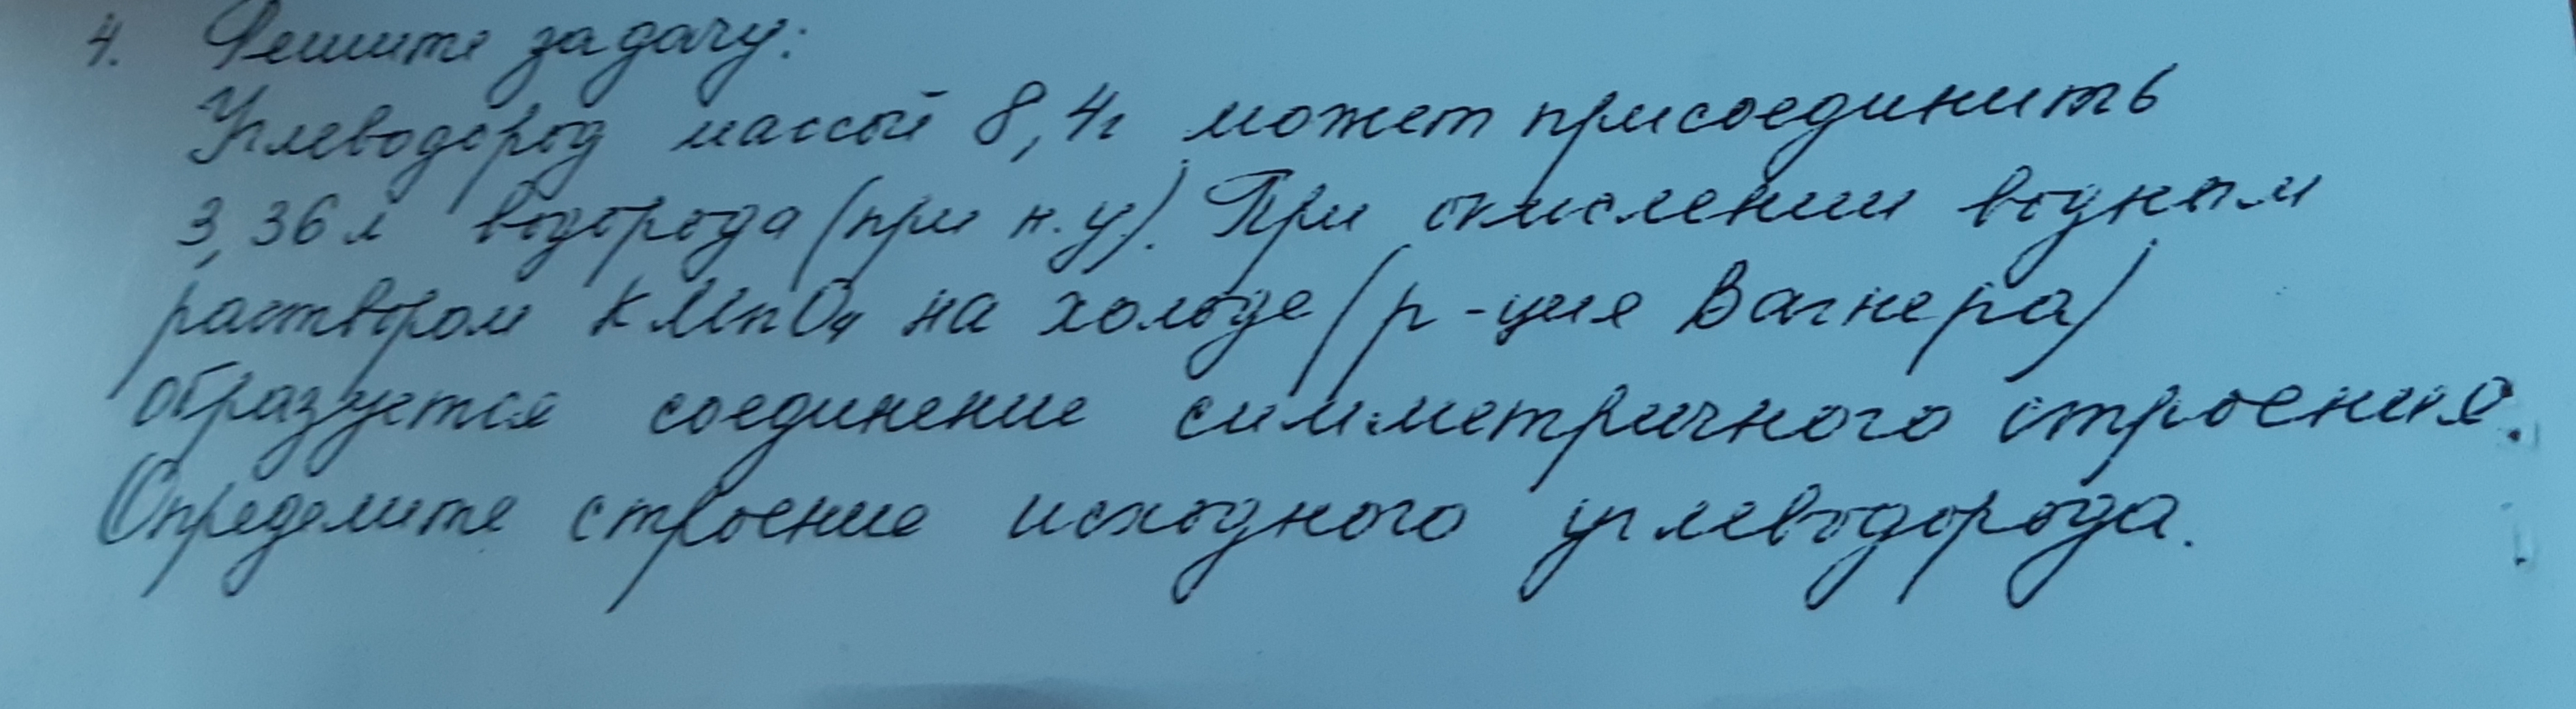 4. Решите задачу:
Углеводород массой 8,4г может присоединить
3,36 л водорода (при н.у). При окислении водным
раствором KMnO4 на холоде (р-ция Вагнера)
образуется соединение симметричного строения.
Определите строение исходного углеводорода.